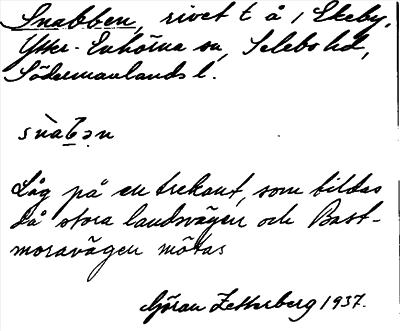 Snabben, rivet t å, Ekeby,
Ytter-Enhörna sn, Selebo hd,
Södermanlands l.
snàbən
Låg på en trekant, som bildas
då stora landsvägen och Bast-
moravägen mötas
Göran Zetterberg 1937.